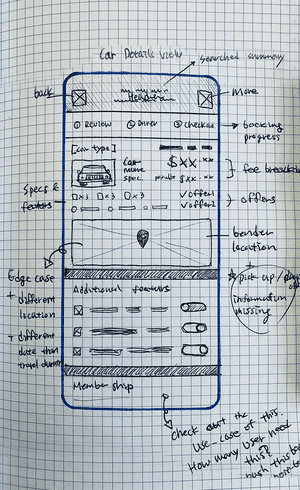 Car Details View
searched summary
back
More
① Review ② Driver ③ Checkout
booking
progress
[car type]
Car
name
spec.
$xx.xx
$xx.xx
fee breakdown
Specs &
features
□×3 □×3 □×3
✓offer1
✓offer2
offers
location
Edge case
+ different
location
+ different
date than
travel
Additional features
* pick up /
information
missing
Member ship
check
the
use-case of this.
How many user need
this?